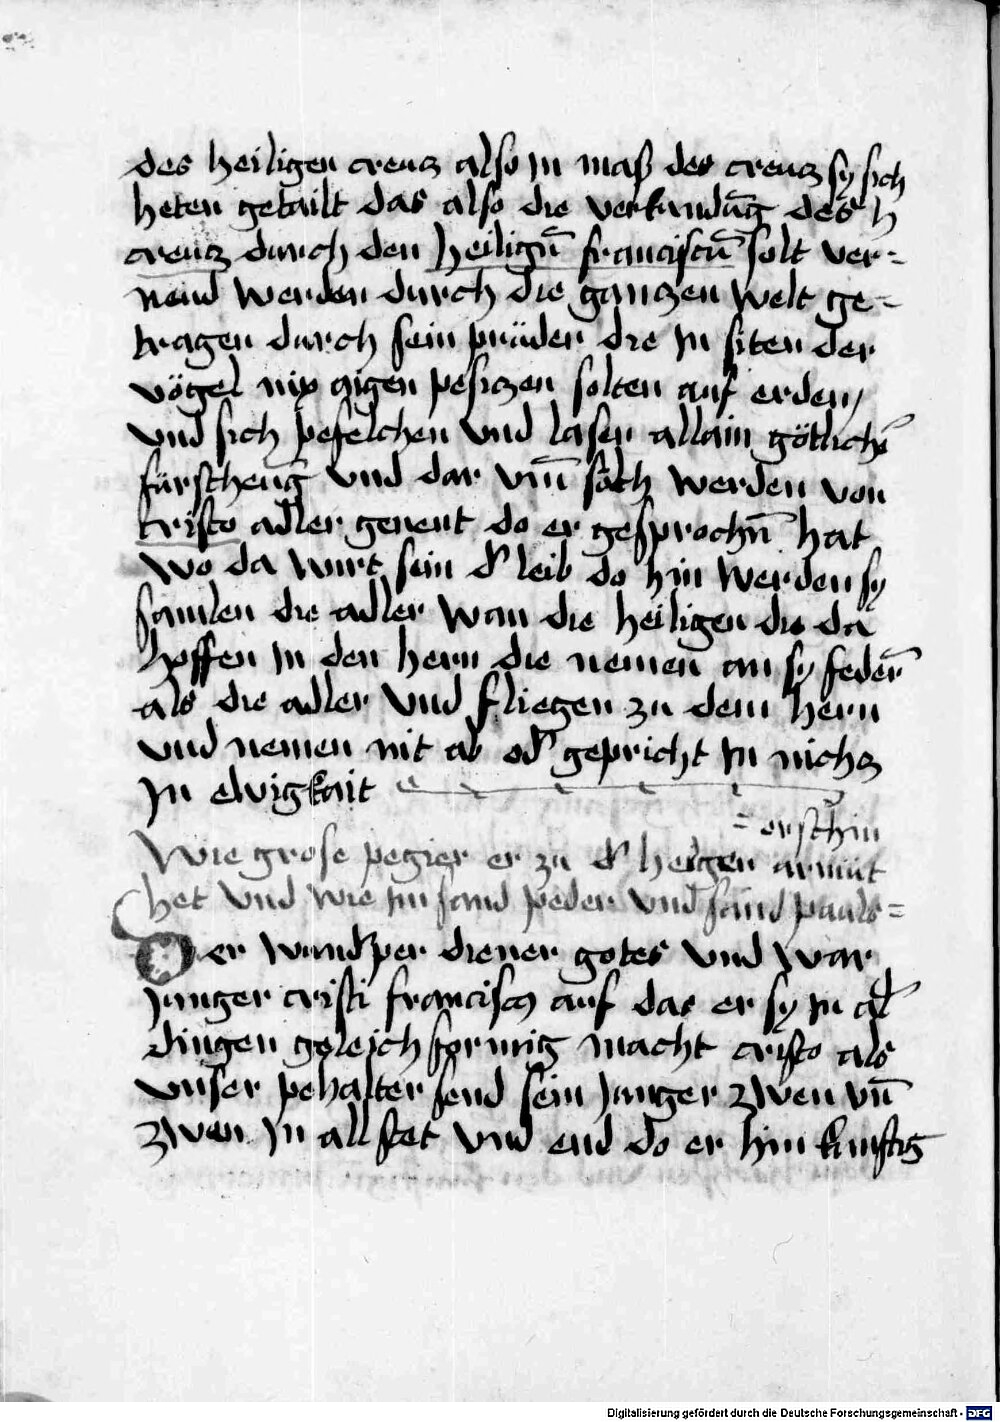 des heiligen creucz also jn maß des creucz sy sich
heten getailt das also die verkundūg des h
creucz durch den heilign̄ franciscū solt ver=
nend werden durch die ganczen welt ge=
tragen durch sein prüder die jn siten der
vögel nix aigen pesiczen solten auf erden
vnd sich pefelchen vnd lasen allain götlichr̄
fürschenḡ vnd dar vm̄ sölch werden von
cristo adler genent do er gesprochn̄ hat
wo da wirt sein dr̄ leib do hin werden sy
samlen die adler wan die heiligen die da
hoffen jn den hern die nemen an sy federn̄
als die adler vnd fliegen zu dem hern
vnd nemen nit ab od̄ gepricht jn nichcz
jn ewigkait
= erschin
Wie grose pegier er zu dr̄ heilgen armut
het vnd wie jm sand peder vnd sand pauls =
Der wundr̄per diener gotes vnd war
junger cristi francisco auf das er sy jn al̄
dingen geleich formig macht cristo als
vnser pehalter send sein junger zwen vn̄
zwen jn all stet vnd end do er hin kunftig